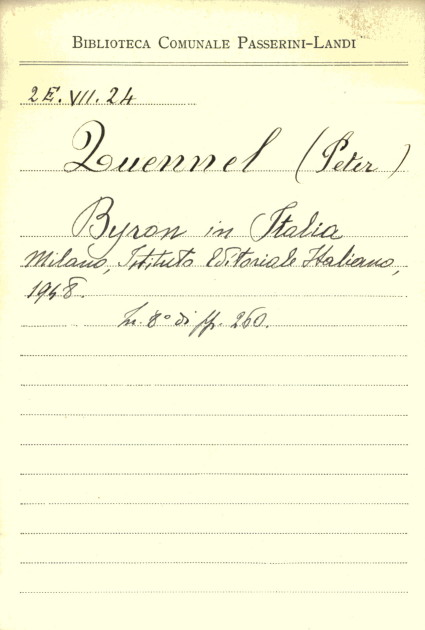 BIBLIOTECA COMUNALE PASSERINI-LANDI
2E.VII.24
Quennel (Peter)
Byron in Italia
Milano, Istituto Editoriale Italiano,
1948.
In 8° di pp. 260.